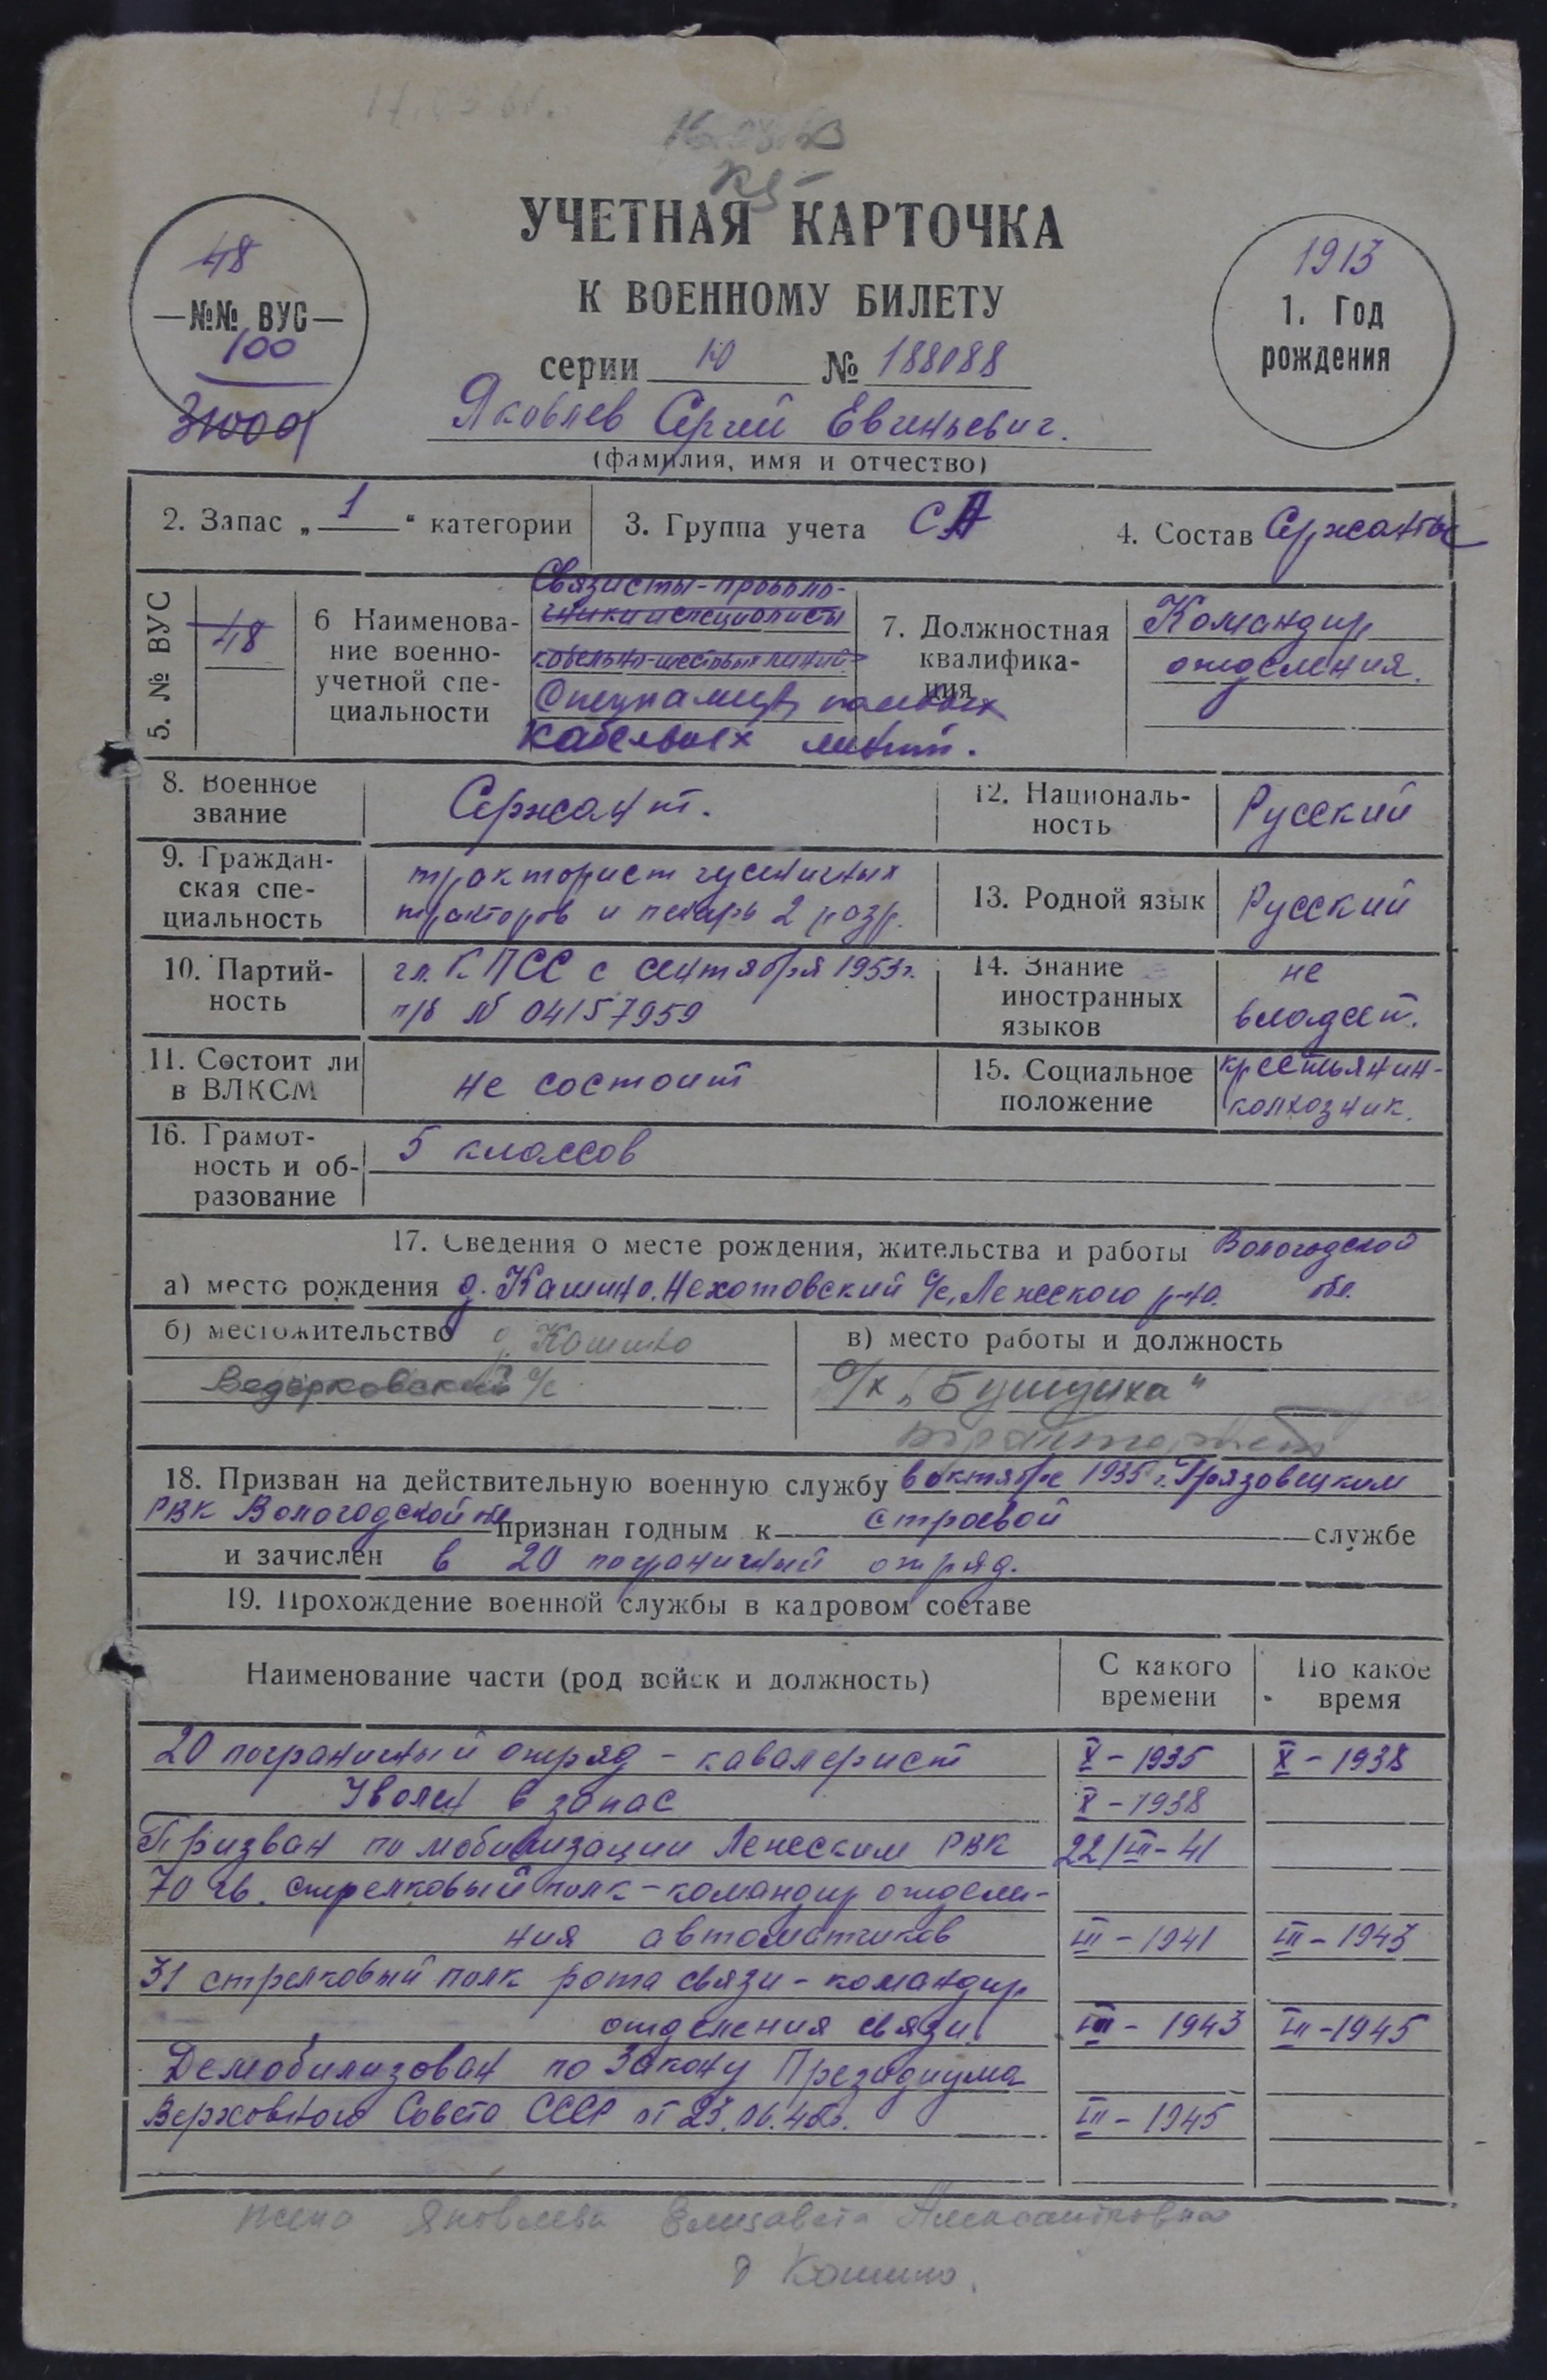 УЧЕТНАЯ КАРТОЧКА
К ВОЕННОМУ БИЛЕТУ
серии Ю № 188088
48
—№№ ВУС—
100
31001
1913
1. Год
рождения
Яковлев Сергей Евгеньевич.
(фамилия, имя и отчество)
2. Запас „ 1 “ категории
3. Группа учета СА
4. Состав Сержанты
5. № ВУС
48
6 Наименова-
ние военно-
учетной спе-
циальности
Связисты-проводо-
чники и специалисты
кабельно-шестовых линий
Специалист полевых
кабельных линий.
7. Должностная
квалифика-
ция
Командир
отделения.
8. Военное
звание
Сержант.
12. Националь-
ность
Русский
9. Граждан-
ская спе-
циальность
тракторист гусеничных
тракторов и пекарь 2 разр.
13. Родной язык
Русский
10. Партий-
ность
чл. КПСС с сентября 1953г.
п/б № 04157959
14. Знание
иностранных
языков
не
владеет.
11. Состоит ли
в ВЛКСМ
не состоит
15. Социальное
положение
крестьянин-
колхозник.
16. Грамот-
ность и об-
разование
5 классов
17. Сведения о месте рождения, жительства и работы Вологодской
а) место рождения д. Кашино, Нехотовский с/с, Лежского р-на. обл.
б) местожительство д. Кашино
Ведерковский с/с
в) место работы и должность
с/х „Бушуиха“
тракторист
18. Призван на действительную военную службу в октябре 1935 г. Грязовецким
РВК Вологодской обл признан годным к строевой службе
и зачислен в 20 пограничный отряд.
19. Прохождение военной службы в кадровом составе
Наименование части (род войск и должность)
С какого
времени
По какое
время
20 пограничный отряд – кавалерист X – 1935 X – 1938
Уволен в запас X – 1938
Призван по мобилизации Лежским РВК 22/VII – 41
70 гв. стрелковый полк – командир отделе-
ния автоматчиков VII – 1941 VII – 1943
31 стрелковый полк рота связи – командир
отделения связи. VII – 1943 VII – 1945
Демобилизован по Закону Президиума
Верховного Совета СССР от 23.06.45г. VII – 1945
жена Яковлева Елизавета Александровна
д Кашино.